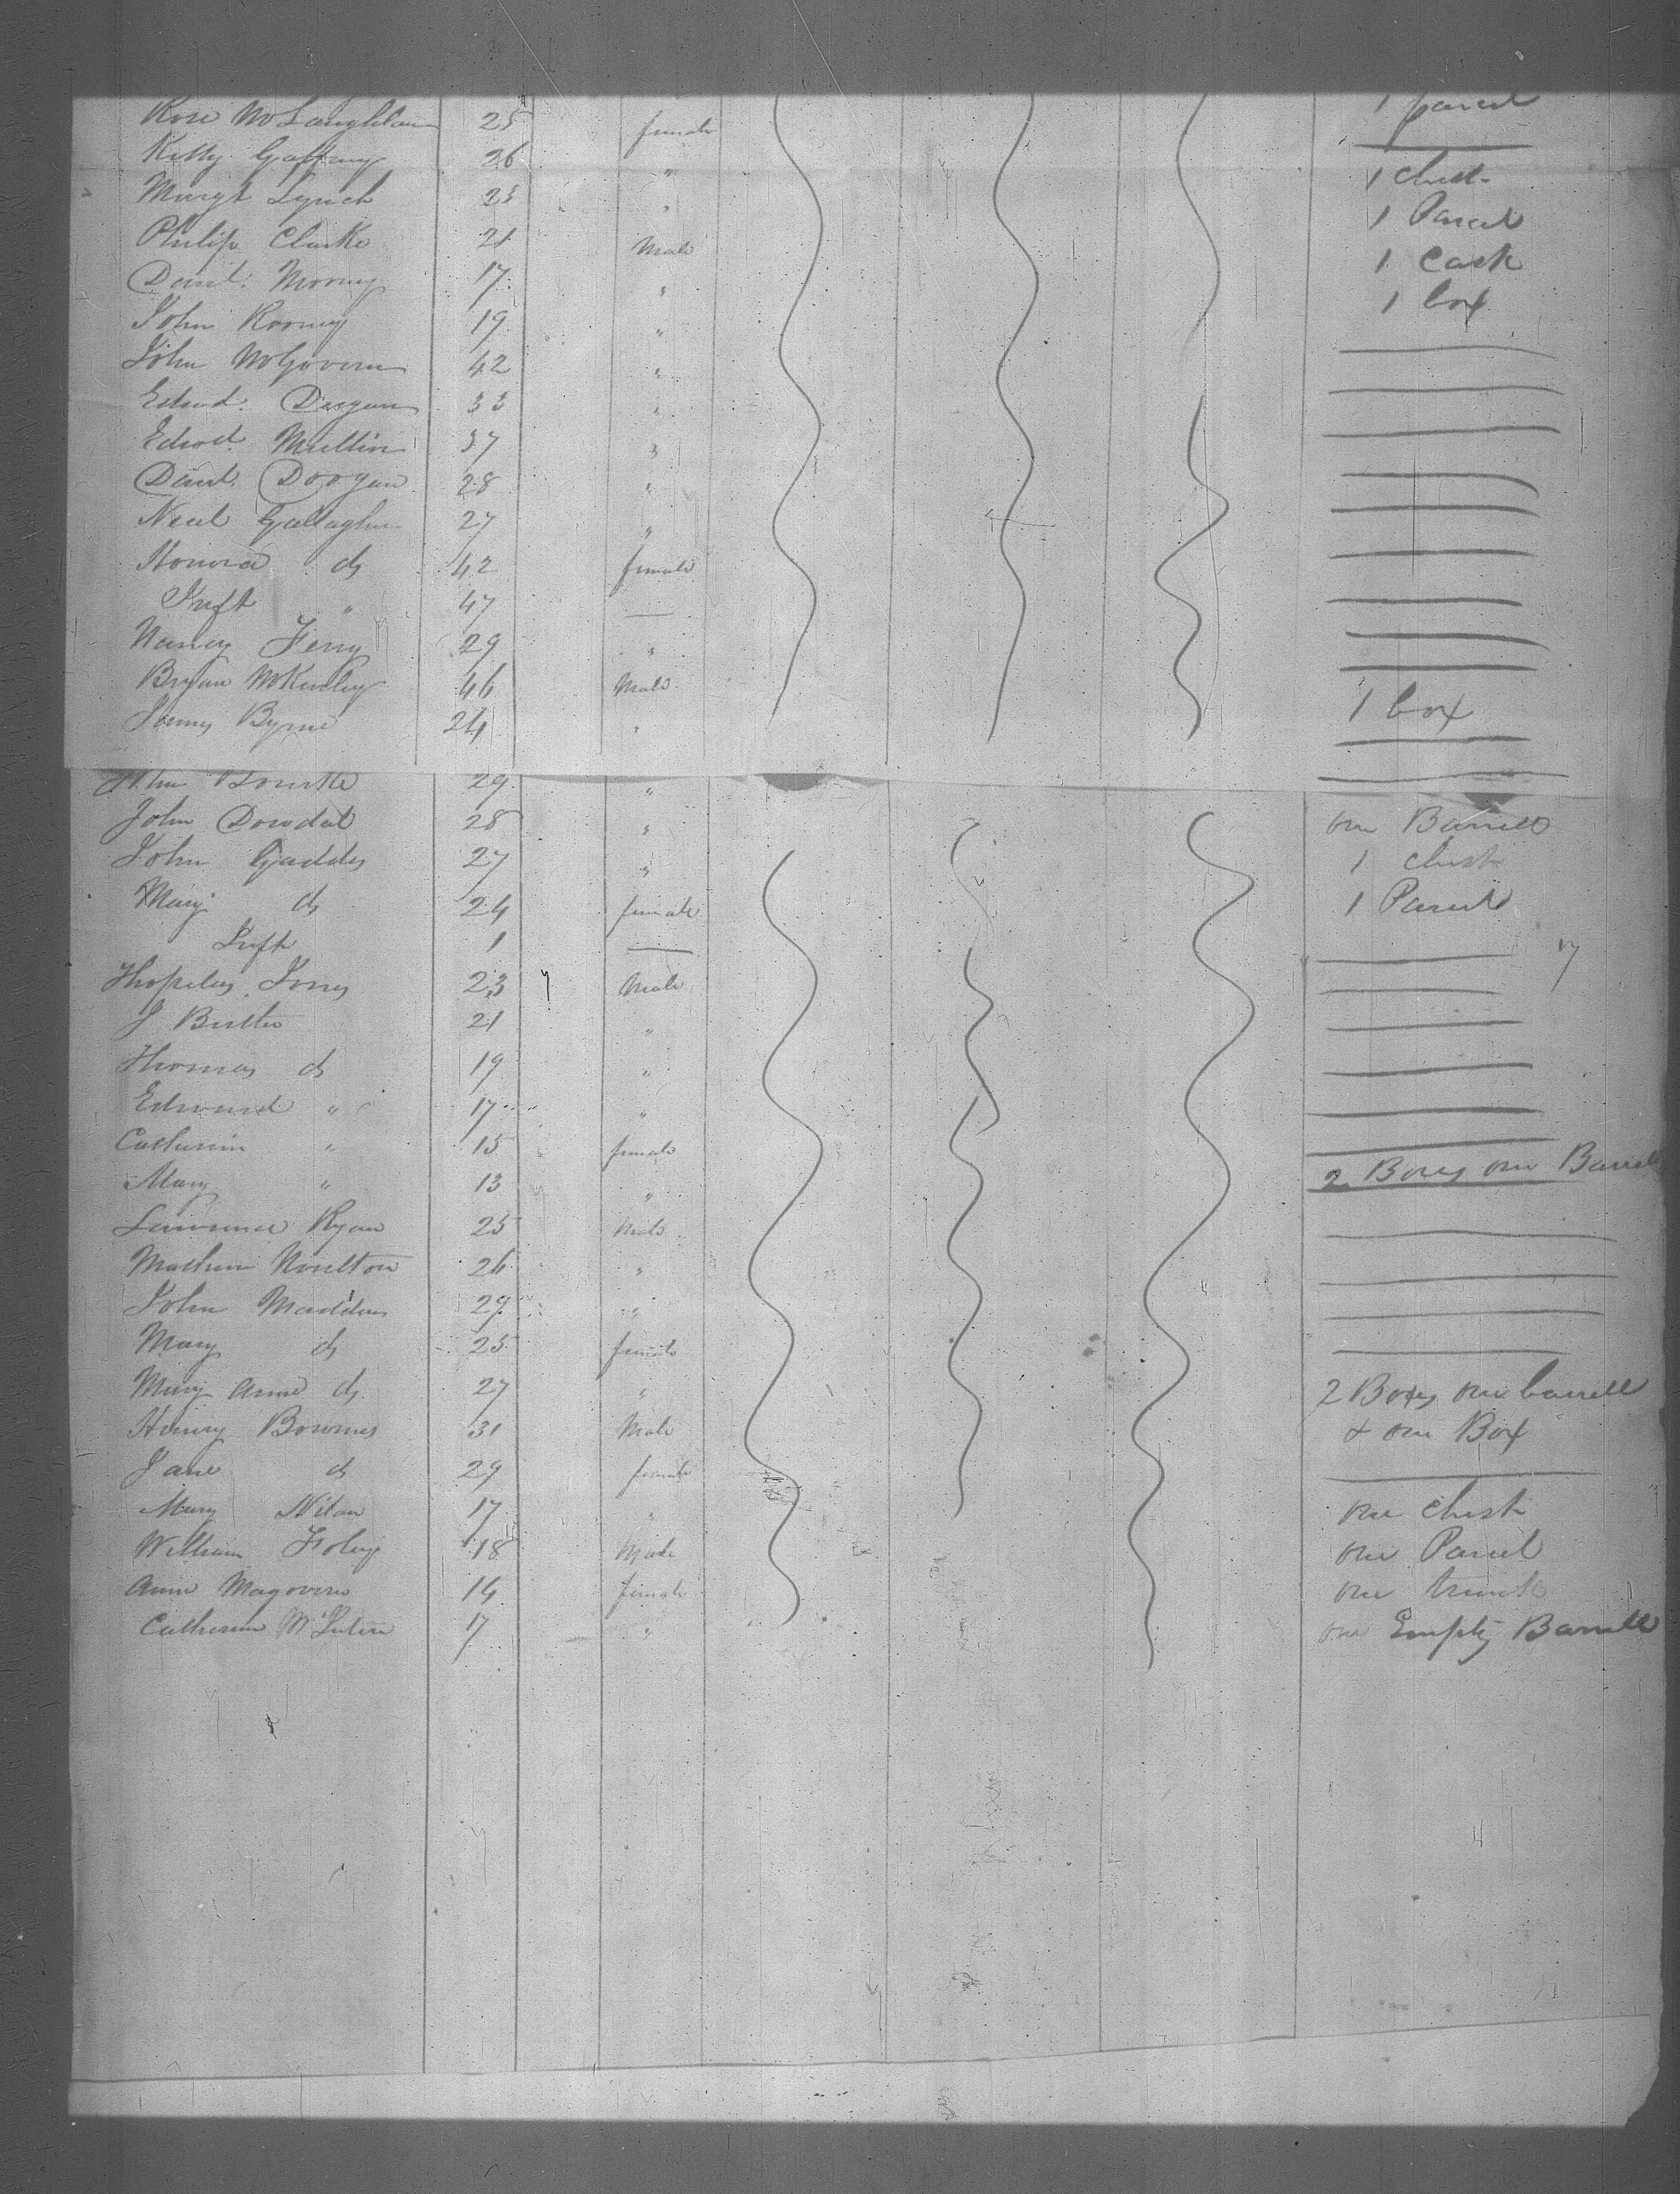 Rose McLaughlan 25 female 1 parcel
Kitty Gaffney 26 "
Margt Lynch 25 " 1 chest
Philip Clarke 21 Male 1 Parcel
Danl. Mooney 17 " 1 Cask
John Rooney 19 " 1 box
John McGovern 42 "
Edwd. Deegan 33 "
Edwd. Mullin 37 "
Danl. Doogan 28 "
Neal Gallagher 27 "
Honora do 42 female
Inft " 47
Nancy Ferry 29 "
Bryan McKinley 46 Male
James Byrne 24 " 1 box
John Bourke 29 "
John Dowdal 28 " one Barrell
John Gaddis 27 " 1 chest
Mary do 24 female 1 Parcel
Inft 1
Jones 23 Male
J Butler 21 "
Thomas do 19 "
Edward " 17 "
Catherin " 15 female
Mary " 13 " 2 Boxes one Barrell
Lawrence Ryan 25 Male
Moulton 26 "
John Madden 29 "
Mary do 25 female
Mary Anne do 27 " 2 Boxes one barrell
Henry Bownes 31 Male & one Box
Jane do 29 female
Mary Nilan 17 " one chest
William Foley 18 Male one Parcel
Anne Magovern 14 female one trunk
Catherine 17 " one Empty Barrell